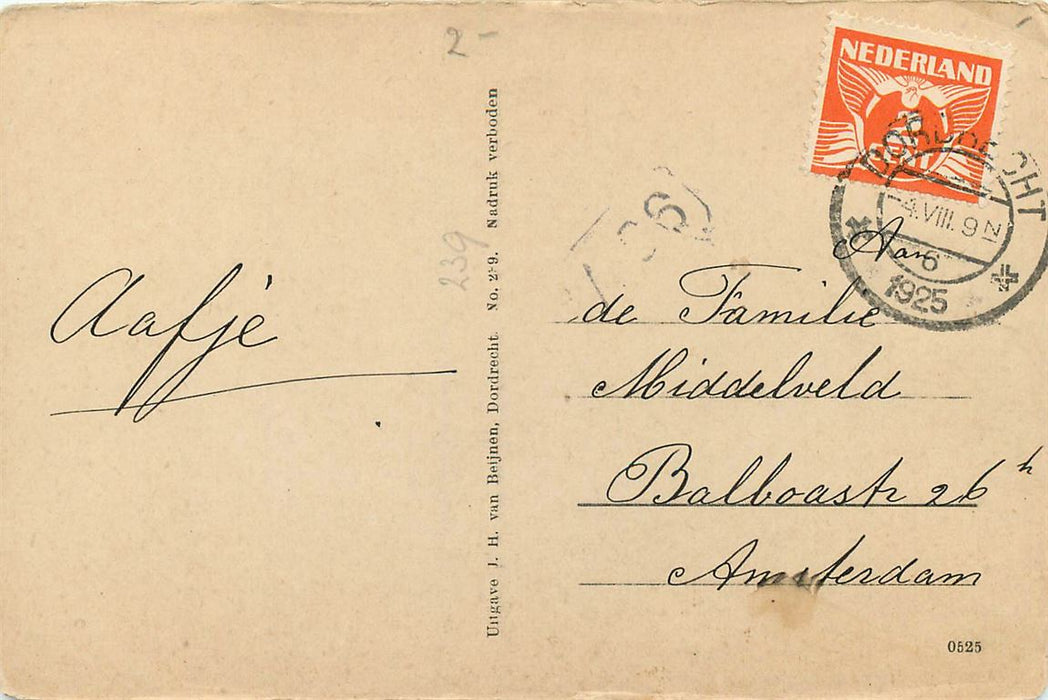 2-
NEDERLAND
DORDRECHT
4.VIII.9 N
6
1925
26
239
Uitgave J. H. van Beijnen, Dordrecht. No. 239. Nadruk verboden
Aafje
Aan
de Familie
Middelveld
Balboastr 26 h
Amsterdam
0525